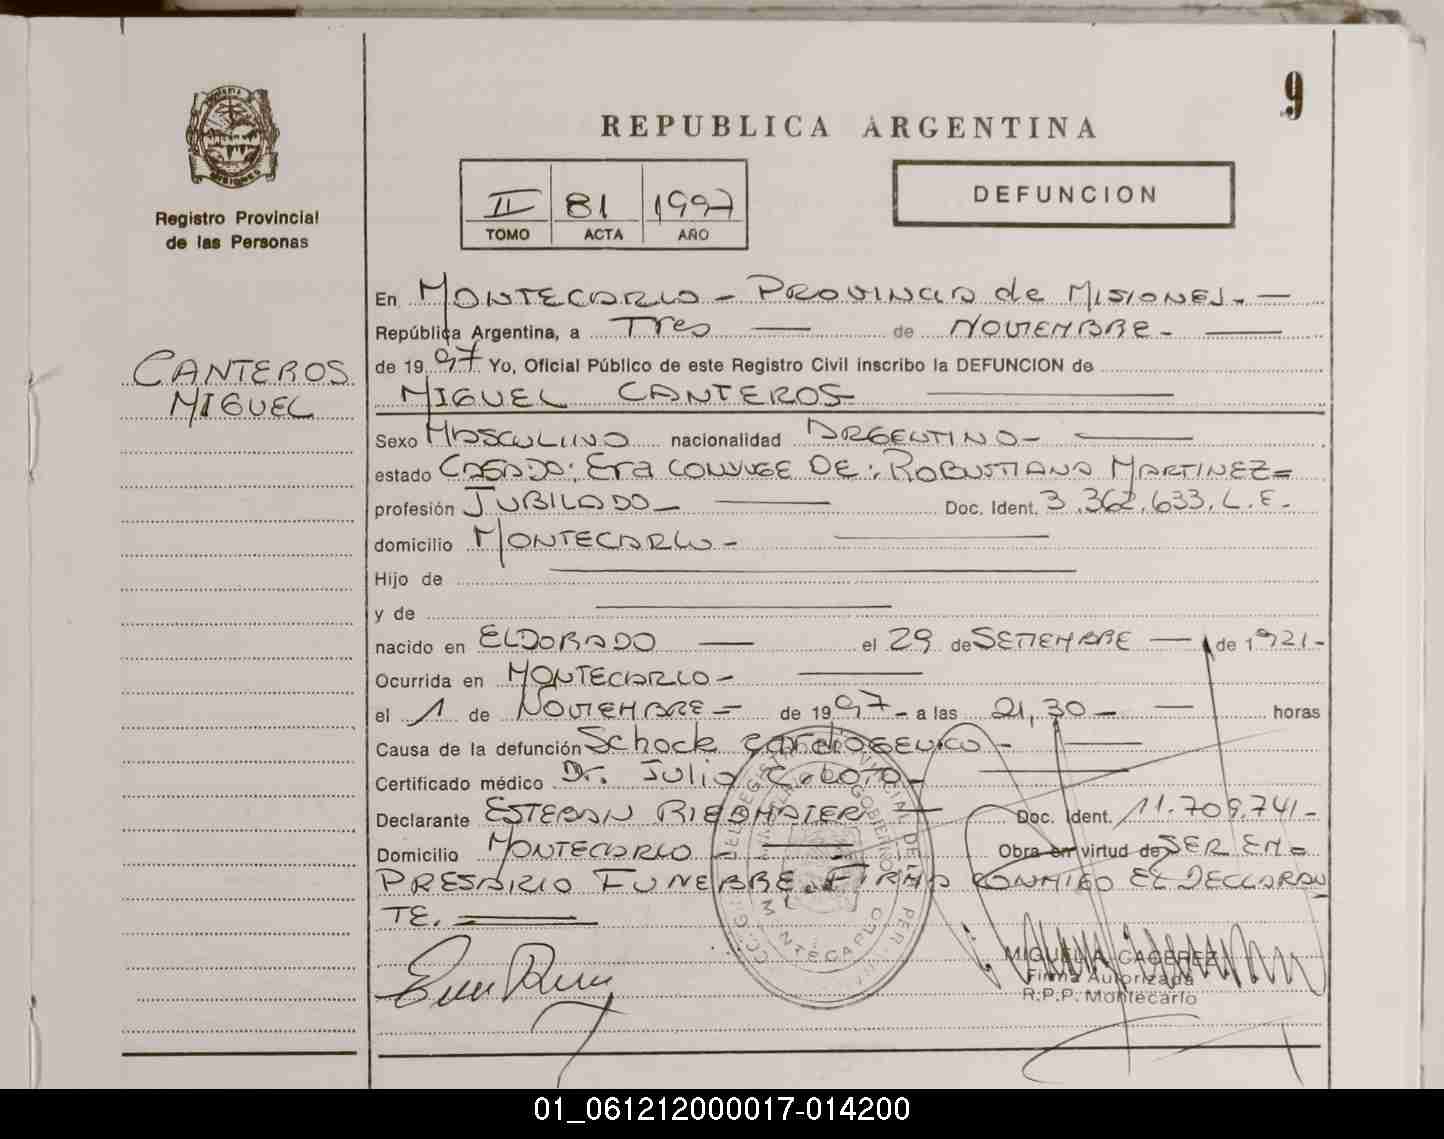 9
REPUBLICA ARGENTINA
MISIONES
Registro Provincial
de las Personas
II 81 1997
TOMO ACTA AÑO
DEFUNCION
CANTEROS
MIGUEL
En MONTECARLO - PROVINCIA de MISIONES. —
República Argentina, a Tres — de NOVIEMBRE - —
de 1997 Yo, Oficial Público de este Registro Civil inscribo la DEFUNCION de
MIGUEL CANTEROS —
Sexo MASCULINO nacionalidad ARGENTINO - —
estado CASADO: Era CONYUGE DE: ROBUSTIANA MARTINEZ =
profesión JUBILADO - — Doc. Ident. 3.362.633. L.E. -
domicilio MONTECARLO - —
Hijo de —
y de —
nacido en ELDORADO — el 29 de SETIEMBRE — de 1921 -
Ocurrida en MONTECARLO - —
el 1 de NOVIEMBRE = de 1997 - a las 21,30 - — horas
Causa de la defunción Schock cardiogenico - —
Certificado médico Dr. Julio —
Declarante ESTEBAN RIEDMAIER — Doc. Ident. 11.709.741 -
Domicilio MONTECARLO - — Obra en virtud de SER EM =
PRESARIO FUNEBRE. FIRMA CONMIGO EL DECLARAN
TE. =
MONTECARLO
MIGUEL A. CACEREZ
Firma Autorizada
R.P.P. Montecarlo
01_061212000017-014200